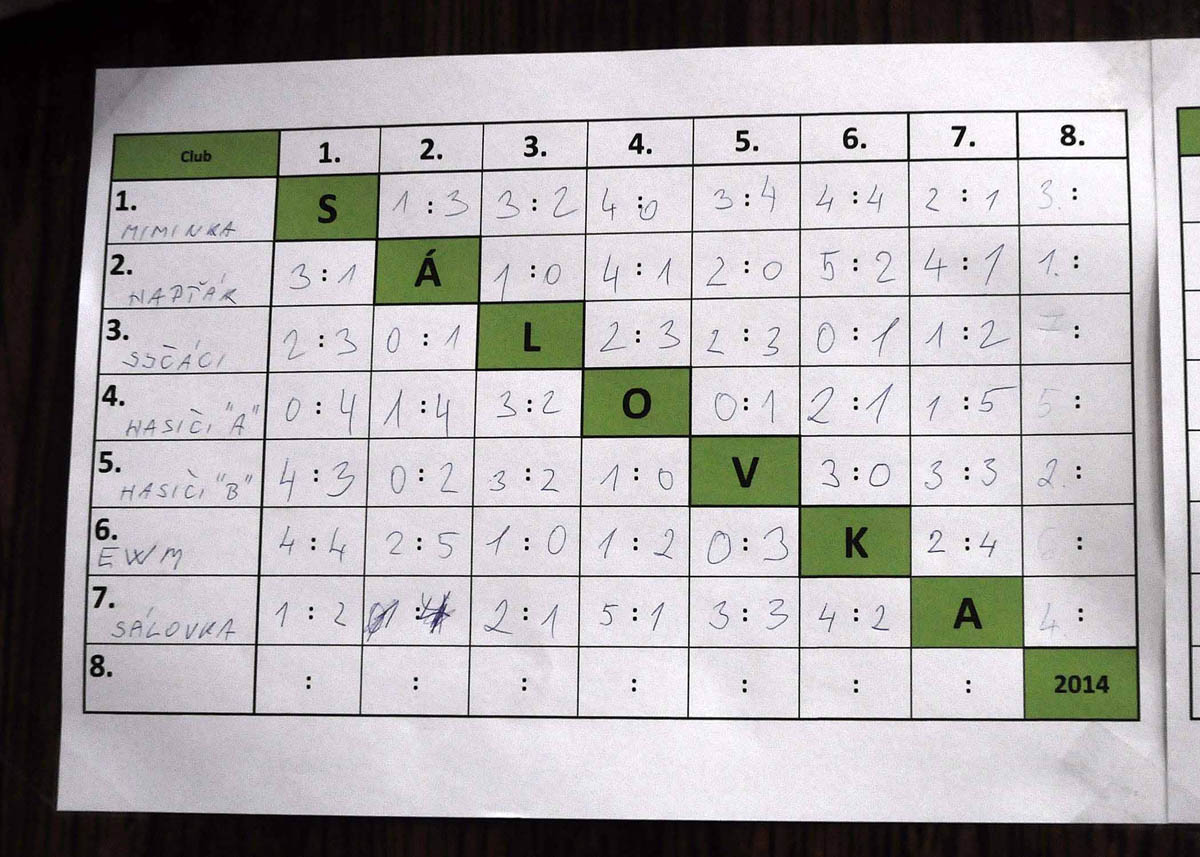 Club 1. 2. 3. 4. 5. 6. 7. 8.
1. MIMINKA S 1:3 3:2 4:0 3:4 4:4 2:1 3. :
2. NAPŤÁK 3:1 Á 1:0 4:1 2:0 5:2 4:1 1. :
3. SÝČÁCI 2:3 0:1 L 2:3 2:3 0:1 1:2 :
4. HASIČI "A" 0:4 1:4 3:2 O 0:1 2:1 1:5 5 :
5. HASIČI "B" 4:3 0:2 3:2 1:0 V 3:0 3:3 2. :
6. EWM 4:4 2:5 1:0 1:2 0:3 K 2:4 6 :
7. SÁLOVKA 1:2 1:4 2:1 5:1 3:3 4:2 A 4. :
8. : : : : : : : 2014